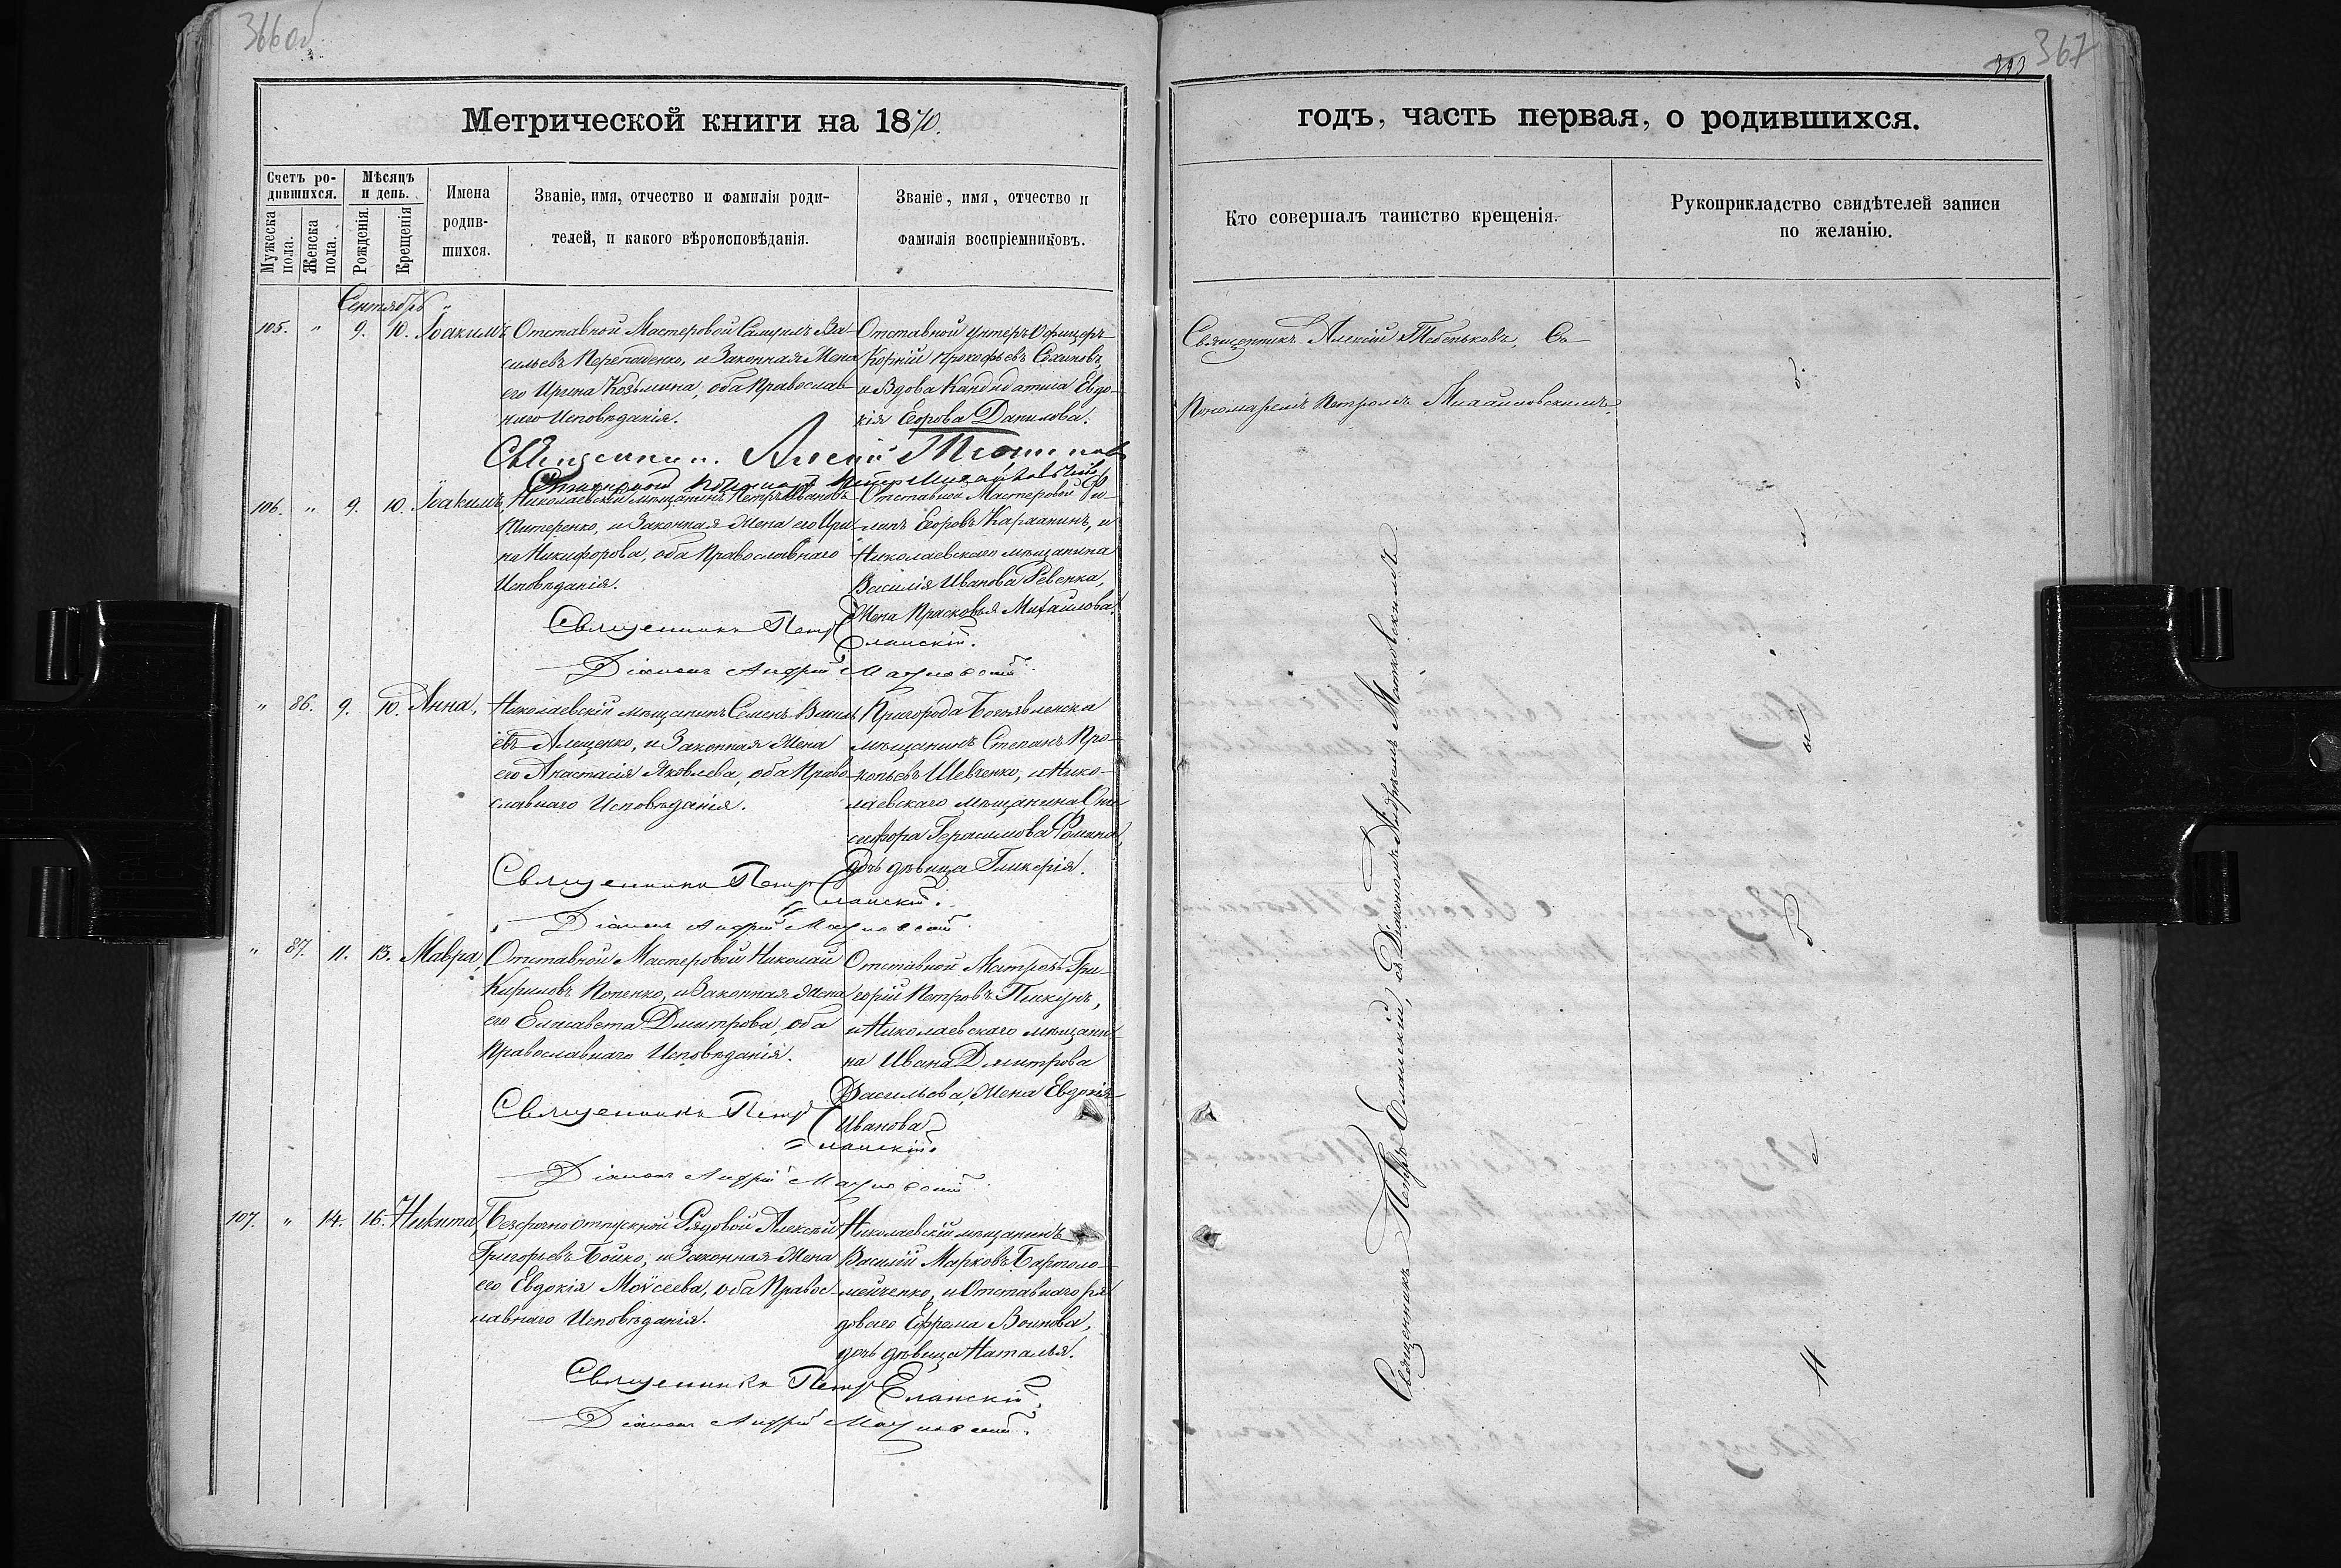 366 об
Метрической книги на 1870.
Счетъ ро-
дившихся.
Мѣсяцъ
и день.
Имена
родив-
шихся.
Званіе, имя, отчество и фамилія роди-
телей, и какого вѣроисповѣданія.
Званіе, имя, отчество и
фамилія воспріемниковъ.
Мужеска
пола.
Женска
пола.
Рожденія.
Крещенія
Сентябрь
105. " 9. 10. Іоакимъ
Отставной Мастеровой Ва-
сильевъ и Законная Жена
его Ирина Козьмина, оба Православ-
наго Исповѣданія.
Отставной Унтеръ Офицеръ
Корній Прокофьевъ
и Вдова Кандидатша Евдо-
кія Егорова Данилова.
106. " 9. 10. Іоакимъ,
Николаевскій мѣщанинъ Петръ Ивановъ
Питеренко, и Законная Жена его Ири-
на Никифорова, оба Православнаго
Исповѣданія.
Отставной Мастеровой Фи-
липъ Егоровъ и
Николаевскаго мѣщанина
Василія Иванова Ревенка,
Жена Прасковья Михайлова.
Священникъ Петръ Еланскій.
Діаконъ Андрей
" 86. 9. 10. Анна,
Николаевскій мѣщанинъ Семенъ Василь-
евъ Алещенко, и Законная Жена
его Анастасія Яковлева, оба Право-
славнаго Исповѣданія.
Пригорода Богоявленска
мѣщанинъ Степанъ Про-
копьевъ Шевченко, и Нико-
лаевскаго мѣщанина Они-
сифора Герасимова Романа,
дочь дѣвица Гликерія.
Священникъ Петръ Еланскій.
Діаконъ Андрей
" 87. 11. 13. Мавра,
Отставной Мастеровой Николай
Кириловъ Попенко, и Законная Жена
его Елисавета Дмитрова, оба
Православнаго Исповѣданія.
Отставной Матрозъ Гри-
горій Петровъ Пискунъ,
и Николаевскаго мѣщани-
на Ивана Дмитрова
Васильева, Жена Евдокія
Иванова
Священникъ Петръ Еланскій.
Діаконъ Андрей
107. " 14. 16. Никита,
Безсрочноотпускной Рядовой Алексѣй
Григорьевъ Бойко, и Законная Жена
его Евдокія Моѵсеева, оба Правос-
лавнаго Исповѣданія.
Николаевскій мѣщанинъ
Василій Марковъ Вартоло-
мейченко, и Отставнаго ря-
доваго Ефрема Воинова,
дочь дѣвица Наталья.
Священникъ Петръ Еланскій.
Діаконъ Андрей
367
годъ, часть первая, о родившихся.
Кто совершалъ таинство крещенія.
Рукоприкладство свидѣтелей записи
по желанію.
Священникъ Алексій Тебеньковъ Съ
Пономаремъ Петромъ
Священникъ Петръ Еланскій, съ Діакономъ Андреемъ